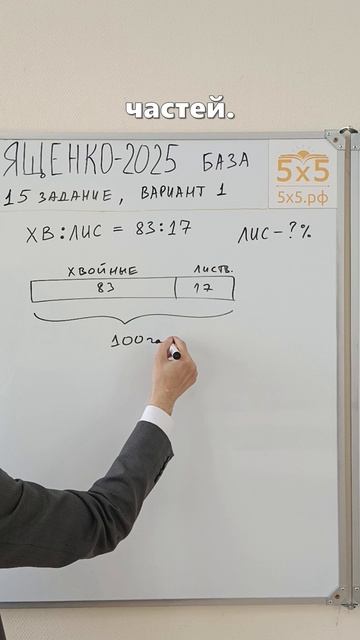 частей.
ЯЩЕНКО-2025 БАЗА
5х5
15 ЗАДАНИЕ, ВАРИАНТ 1
5х5.рф
ХВ:ЛИС = 83:17 ЛИС-?%
ХВОЙНЫЕ ЛИСТВ.
83 17
100